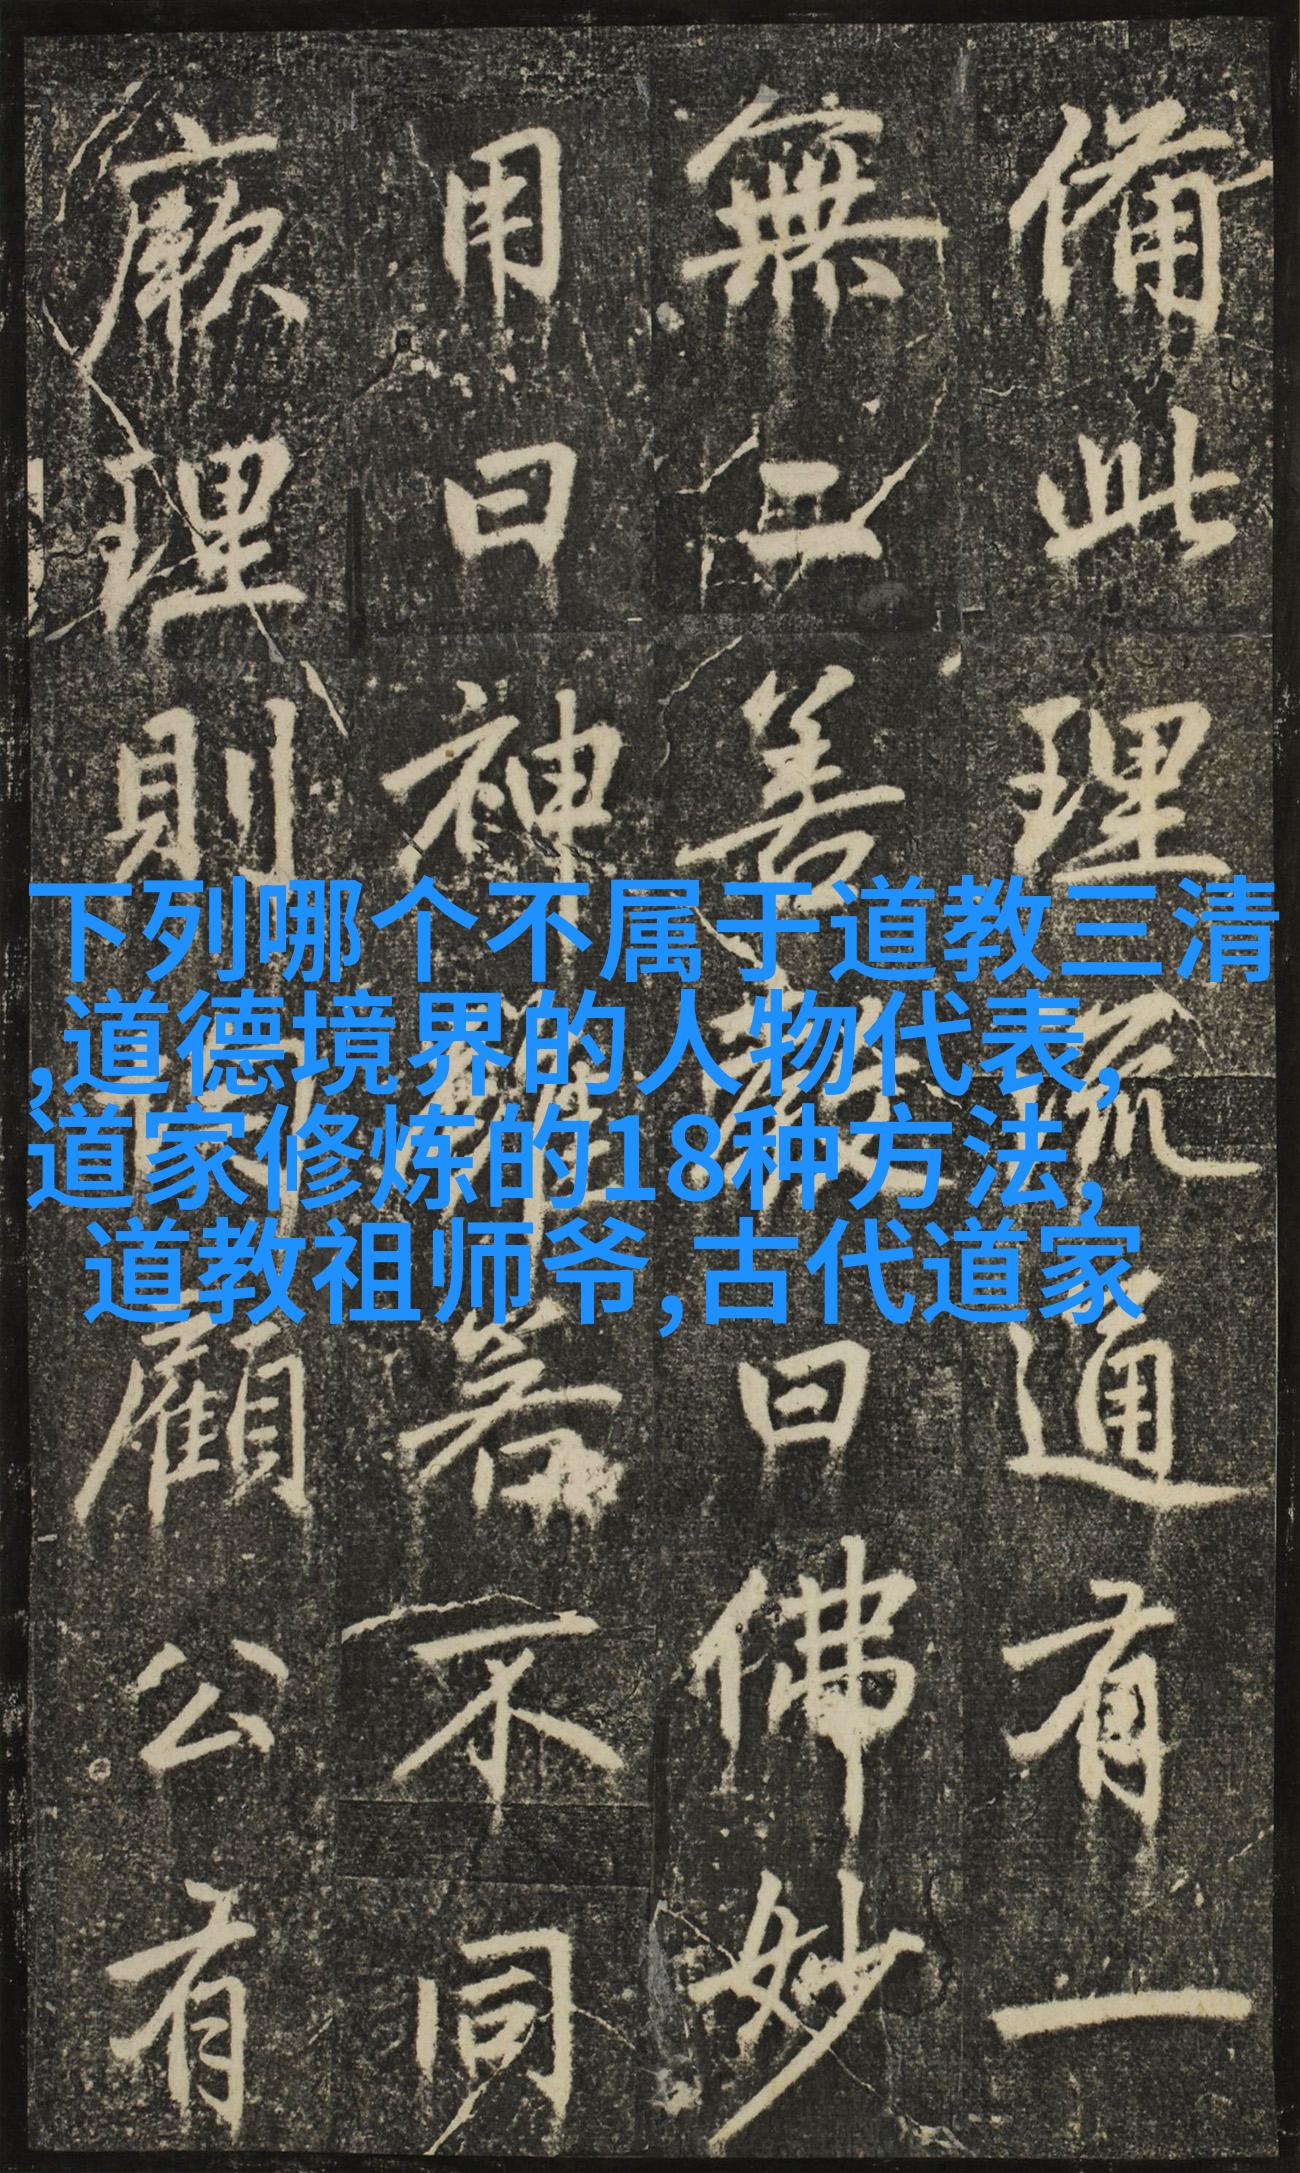 備此理通有一
無二善曰佛妙
用曰神若不同
厥理則顧公有
下列哪个不属于道教三清
,道德境界的人物代表,
道家修炼的18种方法,
道教祖师爷,古代道家